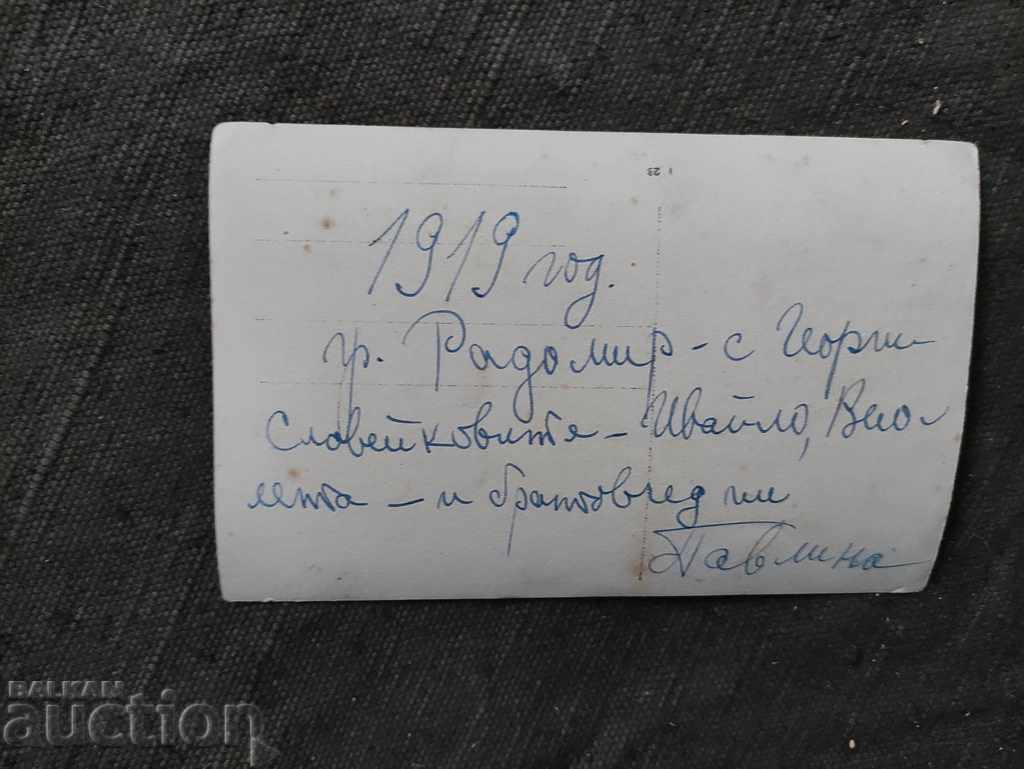 23
1919 год.
гр. Радомир - с Георги
Славейковите - Ивайло, Вио-
лета - и братовчед ми
Павлина
BALKAN
auction